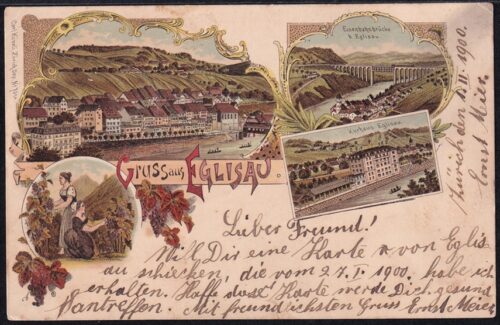 Eisenbahnbrücke
b. Eglisau.
Kurhaus-Eglisau.
Gruss aus EGLISAU
Zürich den 15 III. 1900.
Ernst Meier.
Lieber Freund!
Will Dir eine Karte v von Eglis
au schicken, die vom 27. I. 1900. habe ich
erhalten. Hoffe dass Karte werde Dich gesund
antreffen. Mit freundlichsten Gruss Ernst Meier